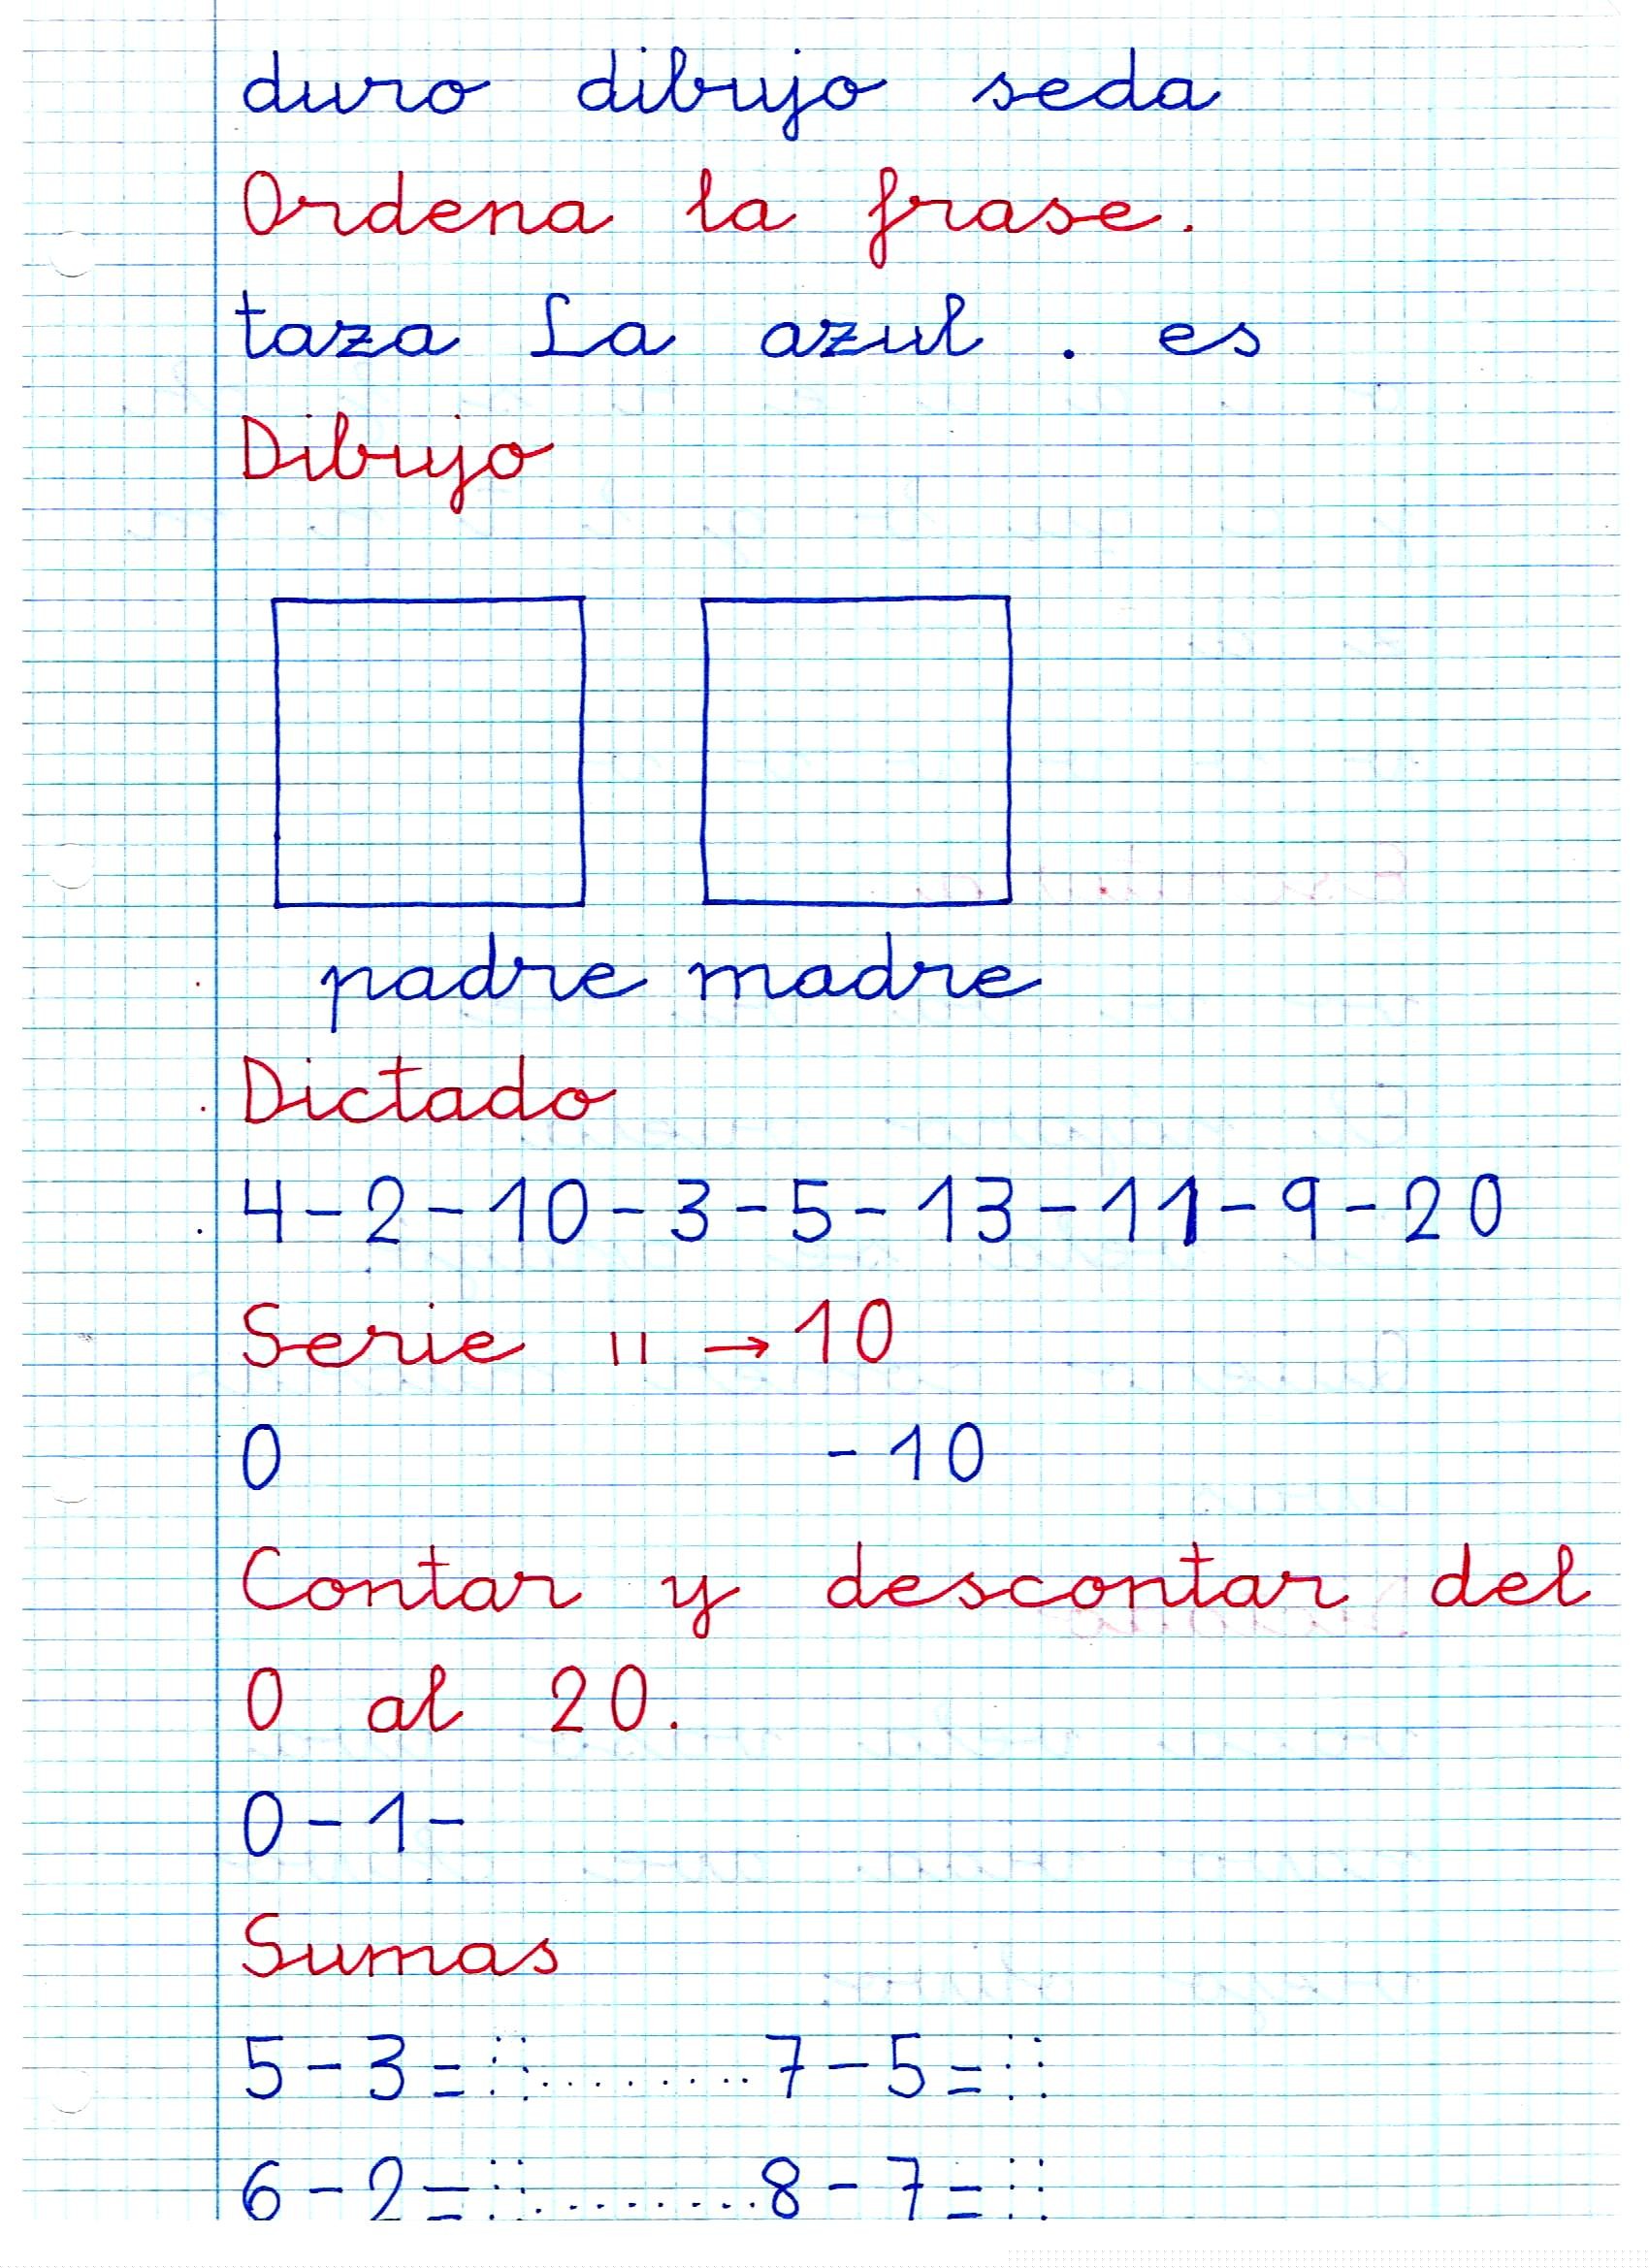 duro dibujo seda
Ordena la frase.
taza La azul . es
Dibujo
padre madre
Dictado
4-2-10-3-5-13-11-9-20
Serie 11 → 10
0 -10
Contar y descontar del
0 al 20.
0-1-
Sumas
5-3= 7-5=
6-2= 8-7=